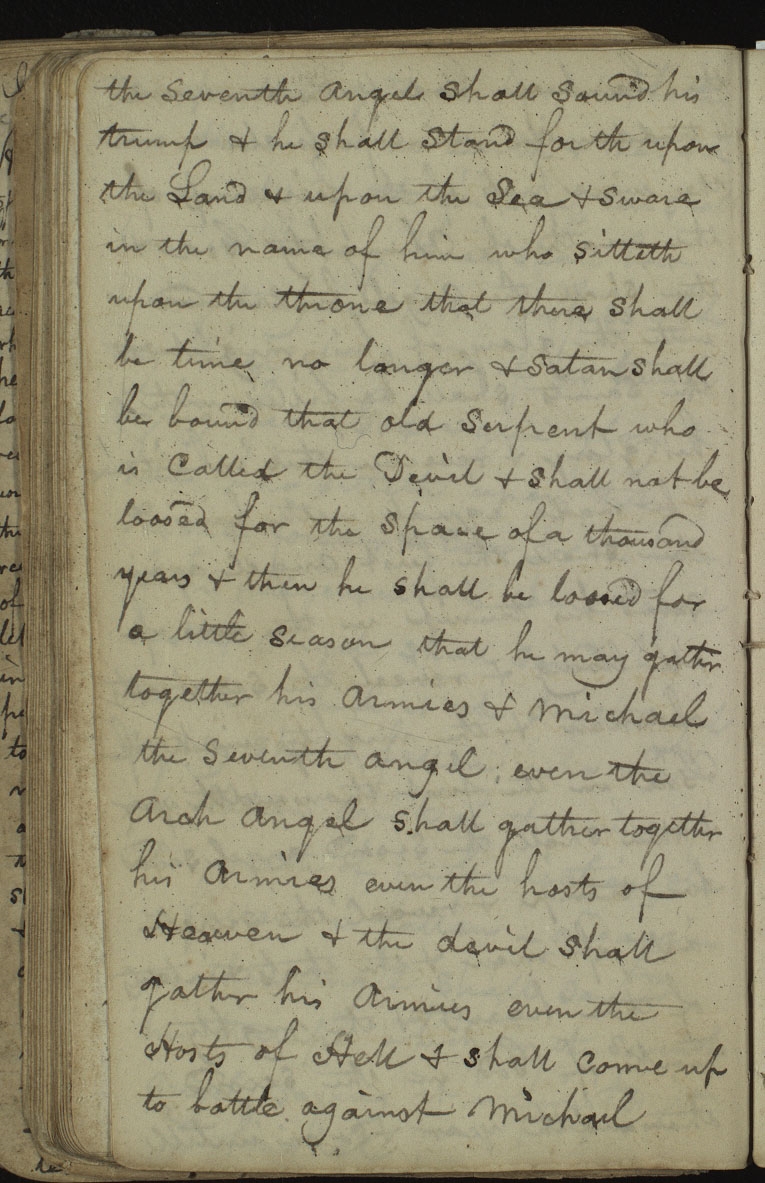 the Seventh Angel Shall Sound his
trump & he shall Stand forth upon
the Land & upon the Sea & Sware
in the name of him who Sitteth
upon the throne that there Shall
be time no longer & Satan Shall
be bound that old Serpent who
is Called the Devil & Shall not be
loosed for the Space of a thousand
years & then he shall be loosed for
a little Season that he may gather
together his Armies & Michael
the Seventh angel, even the
Arch Angel Shall gather together
his Armies even the hosts of
Heaven & the devil Shall
gather his Armies even the
Hosts of Hell & Shall Come up
to battle against Michael